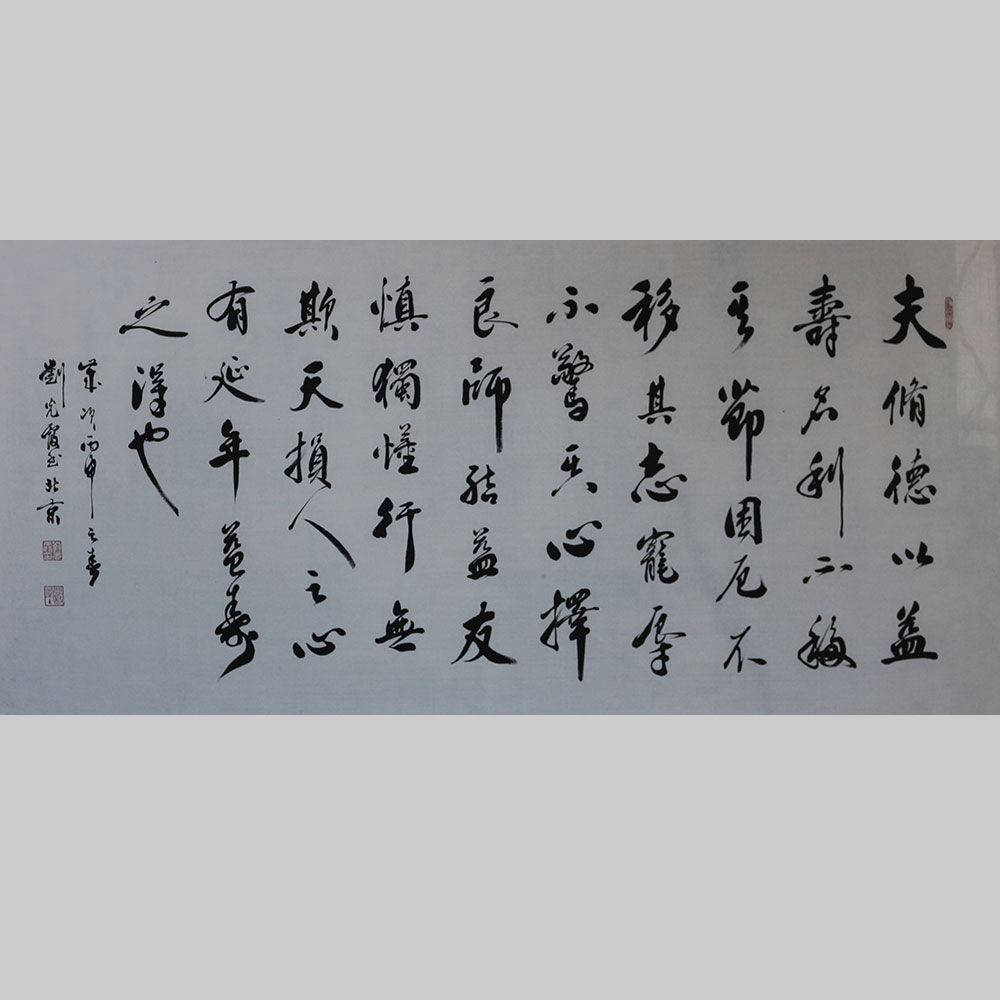 夫脩德以益
壽名利不移
其節困厄不
移其志寵辱
不驚其心擇
良師結益友
慎獨懂行無
欺天損人之心
有延年益壽
之漢也
歲次丙申之春
劉光霞書北京